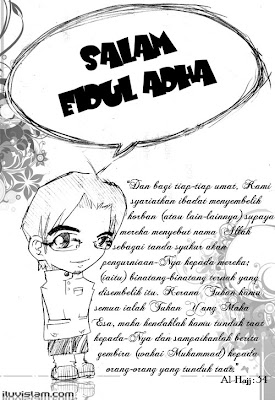 SALAM
EIDUL ADHA
"Dan bagi tiap-tiap umat, Kami
syariatkan ibadat menyembelih
korban (atau lain-lainnya) supaya
mereka menyebut nama Allah
sebagai tanda syukur akan
pengurniaan-Nya kepada mereka;
(iaitu) binatang-binatang ternak yang
disembelih itu. Kerana Tuhan kamu
semua ialah Tuhan Yang Maha
Esa, maka hendaklah kamu tunduk taat
kepada-Nya dan sampaikanlah berita
gembira (wahai Muhammad) kepada
orang-orang yang tunduk taat."
Al-Hajj: 34
iluvislam.com